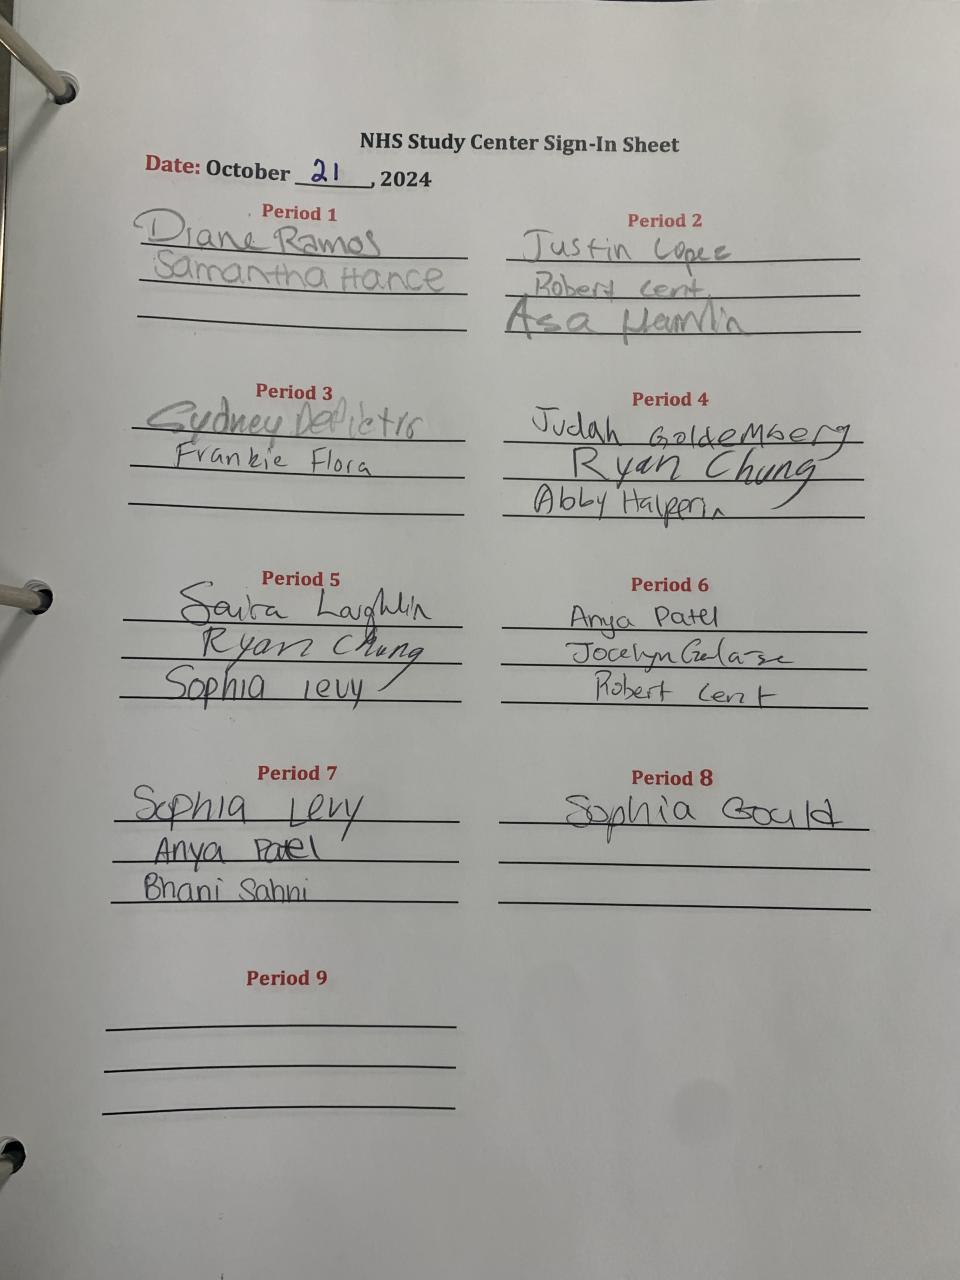 NHS Study Center Sign-In Sheet
Date: October 21, 2024
Period 1
Diane Ramos
Samantha Hance
Period 2
Justin Lopez
Robert Cent
Asa Hamlin
Period 3
Sydney
Frankie Flora
Period 4
Judah Goldemberg
Ryan Chung
Abby Halperin
Period 5
Saira Laughlin
Ryan Chung
Sophia Levy
Period 6
Anya Patel
Jocelyn
Robert Cent
Period 7
Sophia Levy
Anya Patel
Bhani Sahni
Period 8
Sophia Gould
Period 9